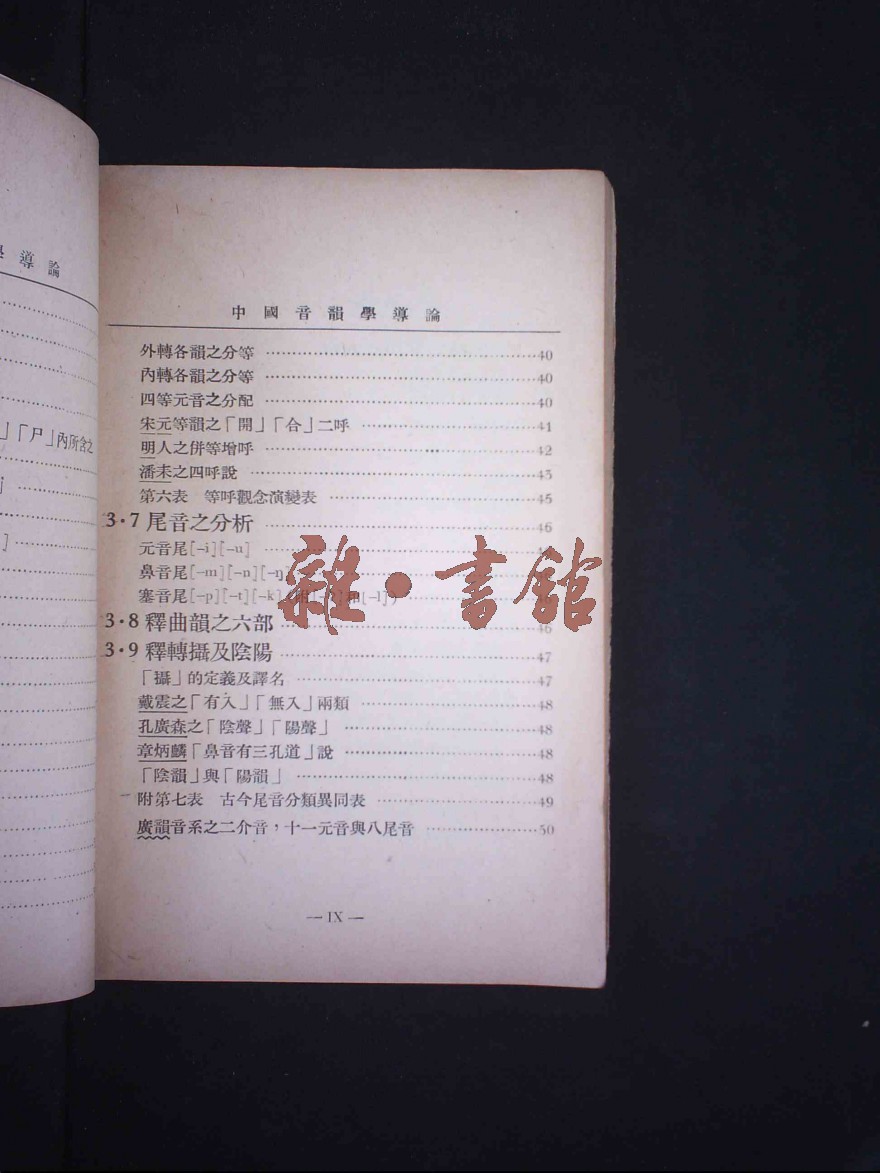 學導論
」「尸」內所含之
]
中國音韻學導論
外轉各韻之分等 ……40
內轉各韻之分等 ……40
四等元音之分配 ……40
宋元等韻之「開」「合」二呼 ……41
明人之併等增呼 ……42
潘耒之四呼說 ……43
第六表 等呼觀念演變表 ……45
3·7 尾音之分析 ……46
元音尾[-i][-u] ……
鼻音尾[-m][-n][-ŋ]
塞音尾[-p][-t][-k]
3·8 釋曲韻之六部 ……46
3·9 釋轉攝及陰陽 ……47
「攝」的定義及譯名 ……47
戴震之「有入」「無入」兩類 ……48
孔廣森之「陰聲」「陽聲」 ……48
章炳麟「鼻音有三孔道」說 ……48
「陰韻」與「陽韻」 ……48
附第七表 古今尾音分類異同表 ……49
廣韻音系之二介音，十一元音與八尾音 ……50
— IX —
雜·書館